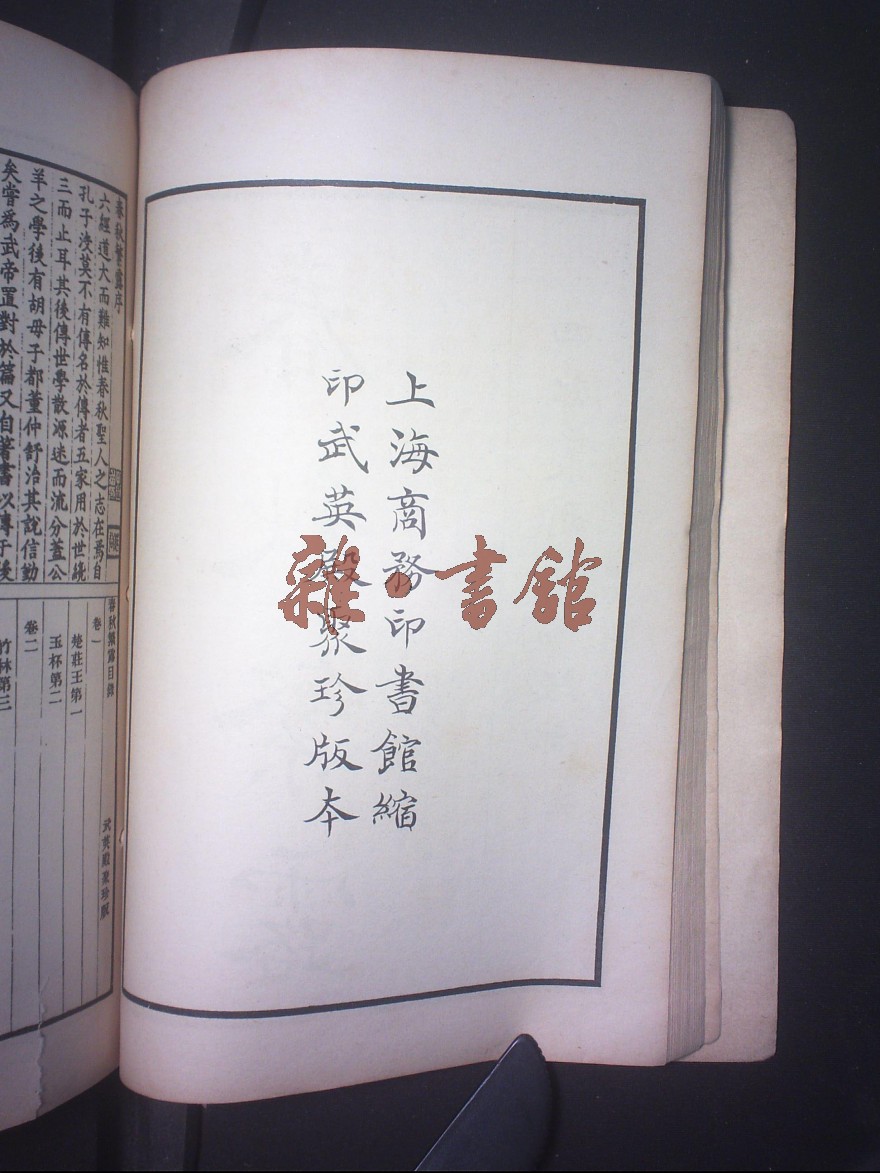 上海商務印書館縮
印武英殿聚珍版本
雜·書館
春秋繁露序
六經道大而難知惟春秋聖人之志在焉自
孔子沒莫不有傳名於傳者五家用於世纔
三而止耳其後傳世學散源迷而流分蓋公
羊之學後有胡毋子都董仲舒治其說信勤
矣嘗為武帝置對於篇又自著書以傳于後
春秋繁露目錄
武英殿聚珍版
卷一
楚莊王第一
玉杯第二
卷二
竹林第三